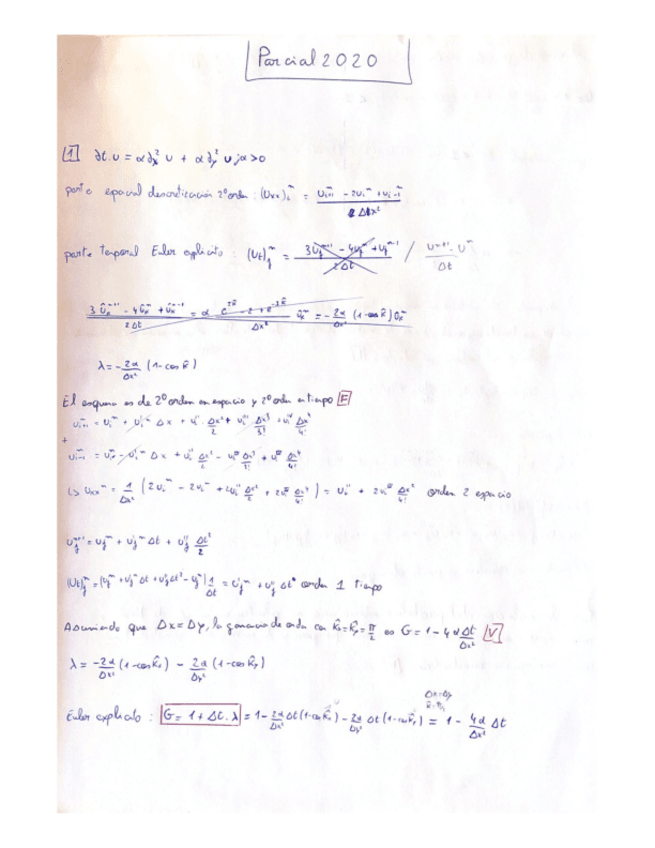 Parcial 2020
1 ∂t.u = α∂x² u + α∂y² u ; α>0
parte espacial discretización 2º orden : (Uxx)ᵢⁿ = Uᵢ₊₁ⁿ - 2Uᵢⁿ + Uᵢ₋₁ⁿ / Δx²
parte temporal Euler explicito : (Ut)ⱼⁿ = 3Uⱼⁿ⁺¹ - 4Uⱼⁿ + Uⱼⁿ⁻¹ / 2Δt / Uⁿ⁺¹ - Uⁿ / Δt
λ = - 2α/Δx² (1-cos k̂)
El esquema es de 2º orden en espacio y 2º orden en tiempo F
Uᵢ₊₁ⁿ = Uᵢⁿ + U'ᵢⁿ Δx + Uᵢ'' Δx²/2 + Uᵢ''' Δx³/3! + Uᵢⁱᵛ Δx⁴/4!
+
Uᵢ₋₁ⁿ = Uᵢⁿ - U'ᵢⁿ Δx + Uᵢ'' Δx²/2 - Uᵢ''' Δx³/3! + Uⁱᵛ Δx⁴/4!
↳ Uxxⁿ = 1/Δx² (2Uᵢⁿ - 2Uᵢⁿ + 2Uᵢ'' Δx²/2 + 2Uᵢⁱᵛ Δx⁴/4!) = Uᵢ'' + 2Uᵢⁱᵛ Δx²/4! orden 2 espacio
Uⱼⁿ⁺¹ = Uⱼⁿ + U'ⱼⁿ Δt + Uⱼ'' Δt²/2
(Ut)ⱼⁿ = (Uⱼⁿ + U'ⱼⁿ Δt + Uⱼ'' Δt² - Uⱼⁿ) 1/Δt = U'ⱼⁿ + Uⱼ'' Δt orden 1 tiempo
Asumiendo que Δx = Δy, la ganancia de onda con k̂x = k̂y = π/2 es G = 1 - 4αΔt/Δx² V
λ = -2α/Δx² (1-cos k̂x) - 2α/Δy² (1-cos k̂y)
Δx=Δy
Euler explicito : G = 1 + Δt . λ = 1 - 2α/Δx² Δt (1-cos k̂x) - 2α/Δy² Δt (1-cos k̂y) = 1 - 4α/Δx² Δt